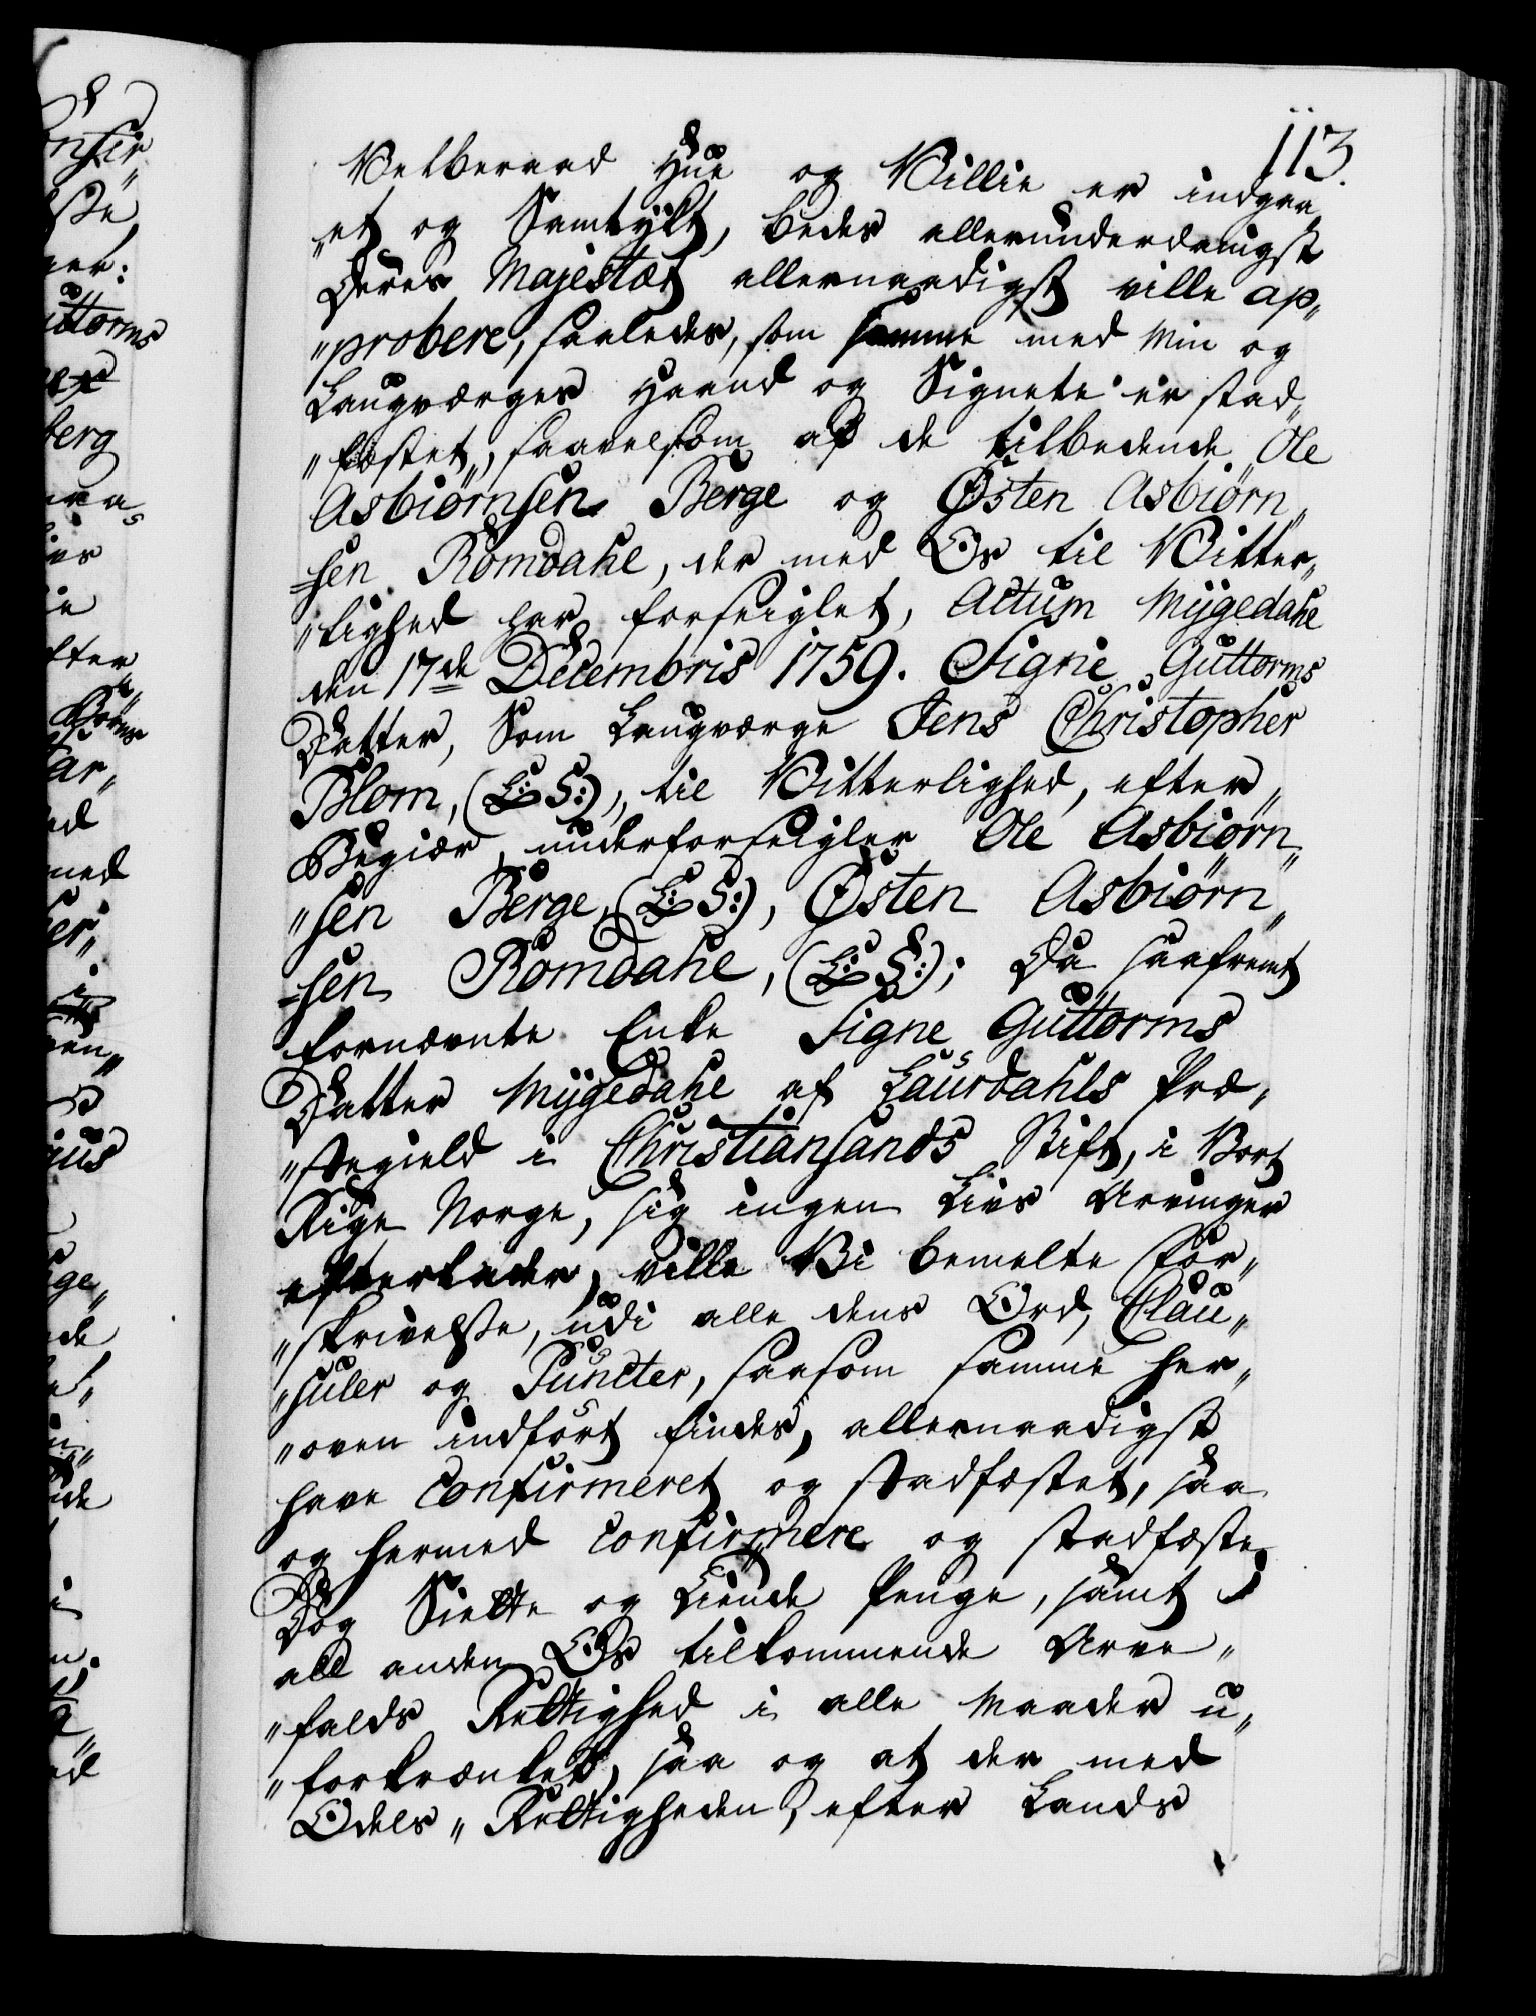 113.
Velberaad Hue og Villie er indgaa„
„et og Samtykt, beder allerunderdanigst
Deres Majestæt allernaadigst ville ap„
„probere, saaledes, som samme med Min og
Laugværges Haand og Signete er stad„
„fæstet, saavelsom af de tilbedende Ole
Asbiørnsen Berge og Østen Asbiørn„
„sen Romdahl, der med Os til Vitter„
„lighed har forseiglet, Actum Mÿgedahl
den 17de Decembris 1759. Signe Guttorms
Datter, Som Laugværge Jens Christopher
Blom, (L: S:), til Vitterlighed, efter
Begiær, underforseigler Ole Asbiørn„
„sen Berge, (L: S:), Østen Asbiørn„
„sen Romdahl, (L: S:); Da saafremt
fornævnte Enke Signe Guttorms
Datter Mÿgedahl af Laurdahls Præ„
„stegield i Christiansands Stift, i Vort
Rige Norge, sig ingen Livs Arvinger
efterlader, ville Vi bemelte For„
„skrivelse, udi alle dens Ord, Clau„
„suler og Puncter, saasom samme her„
„oven indført findes, allernaadigst
have Confirmeret og stadfæstet, saa
og hermed Confirmere og stadfæste
Dog Siette og Tiende Penge, samt
all anden Os tilkommende Arve„
„falds Rettighed i alle Maader u„
„forkrænket, saa og at der med
Odels„Rettigheden, efter Lands